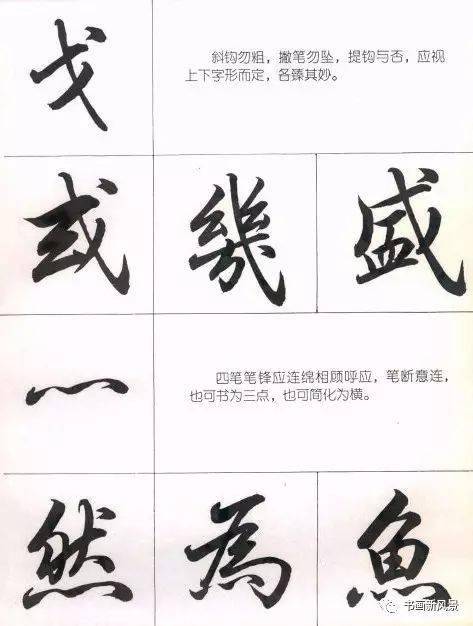 戈
斜钩勿粗，撇笔勿坠，提钩与否，应视
上下字形而定，各臻其妙。
或 幾 盛
灬
四笔笔锋应连绵相顾呼应，笔断意连，
也可书为三点，也可简化为横。
然 為 魚
书画新风景